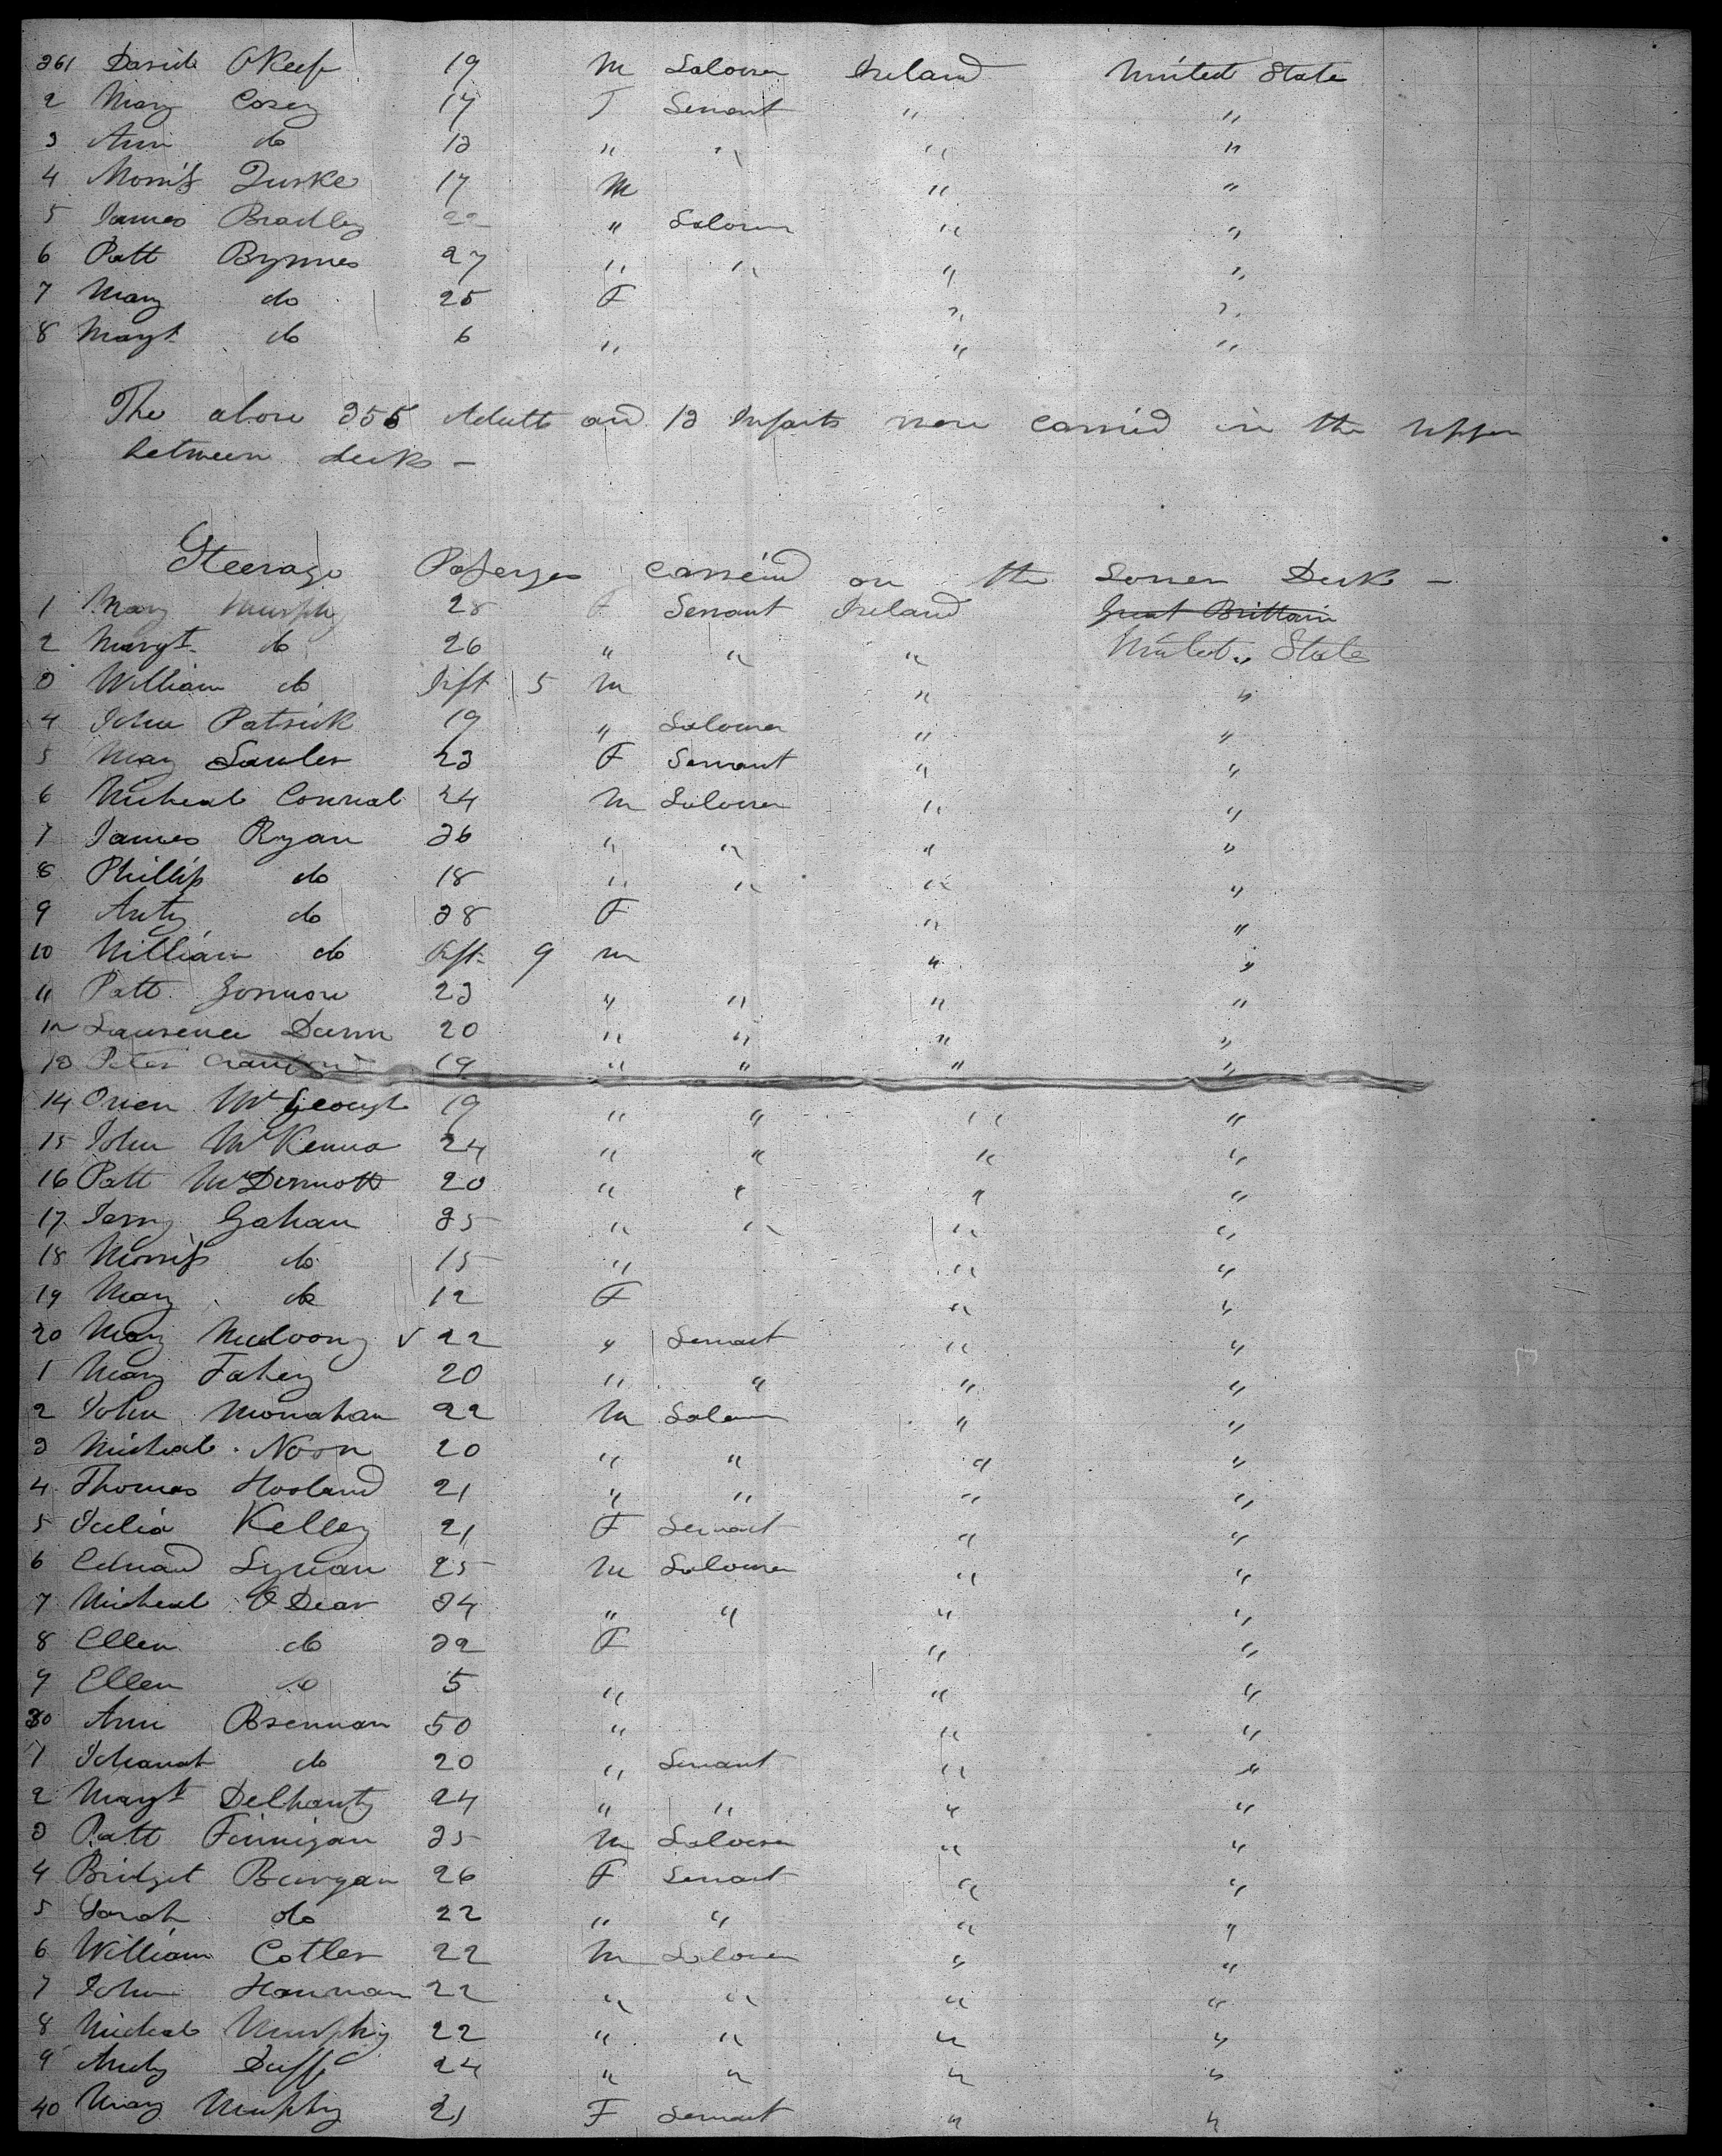 361 David OKeef 19 M Labourer Ireland United State
2 Mary Cosey 17 F Servant " "
3 Ann do 13 " " " "
4 Morris Quirke 17 M " "
5 James Bradley 22 " Labourer " "
6 Patt Byrnes 27 " " " "
7 Mary do 25 F " "
8 Margt do 6 " " "
The above 355 Adults and 13 Infants were carried in the upper
between decks -
Steerage Passenges carried on the Lower Deck -
1 Mary Murphy 28 F Servant Ireland Great Brittain
2 Margt do 26 " " " United " State
3 William do Inft 5 M " "
4 John Patrick 19 " Labourer " "
5 Mary Lawler 23 F Servant " "
6 Micheal Connal 24 M Labourer " "
7 James Ryan 36 " " " "
8 Phillip do 18 " " " "
9 Anty do 38 F " "
10 William do Inft 9 M " "
11 Patt Gormon 23 " " " "
12 Laurence Dunn 20 " " " "
13 Peter 19 " " " "
14 Owen McGeough 19 " " " "
15 John McKenna 24 " " " "
16 Patt McDermott 20 " " " "
17 Jerry Gahan 35 " " " "
18 Morris do 15 " " "
19 Mary do 12 F " "
20 Mary Muldoony √ 22 " Servant " "
1 Mary Fahey 20 " " " "
2 John Monahan 22 M Labourer " "
3 Micheal Noon 20 " " " "
4 Thomas Hooland 21 " " " "
5 Julia Kelley 21 F Servant " "
6 Edward Lynan 25 M Labourer " "
7 Micheal O Dear 34 " " " "
8 Ellen do 32 F " "
9 Ellen do 5 " " "
30 Ann Brennan 50 " " "
1 Johanah do 20 " Servant " "
2 Margt Delhanty 24 " " " "
3 Patt Finnigan 35 M Labourer " "
4 Bridget Bergan 26 F Servant " "
5 Sarah do 22 " " " "
6 William Cotler 22 M Labourer " "
7 John Hannan 22 " " " "
8 Micheal Murphy 22 " " " "
9 Andy Duff 24 " " " "
40 Mary Murphy 21 F Servant " "